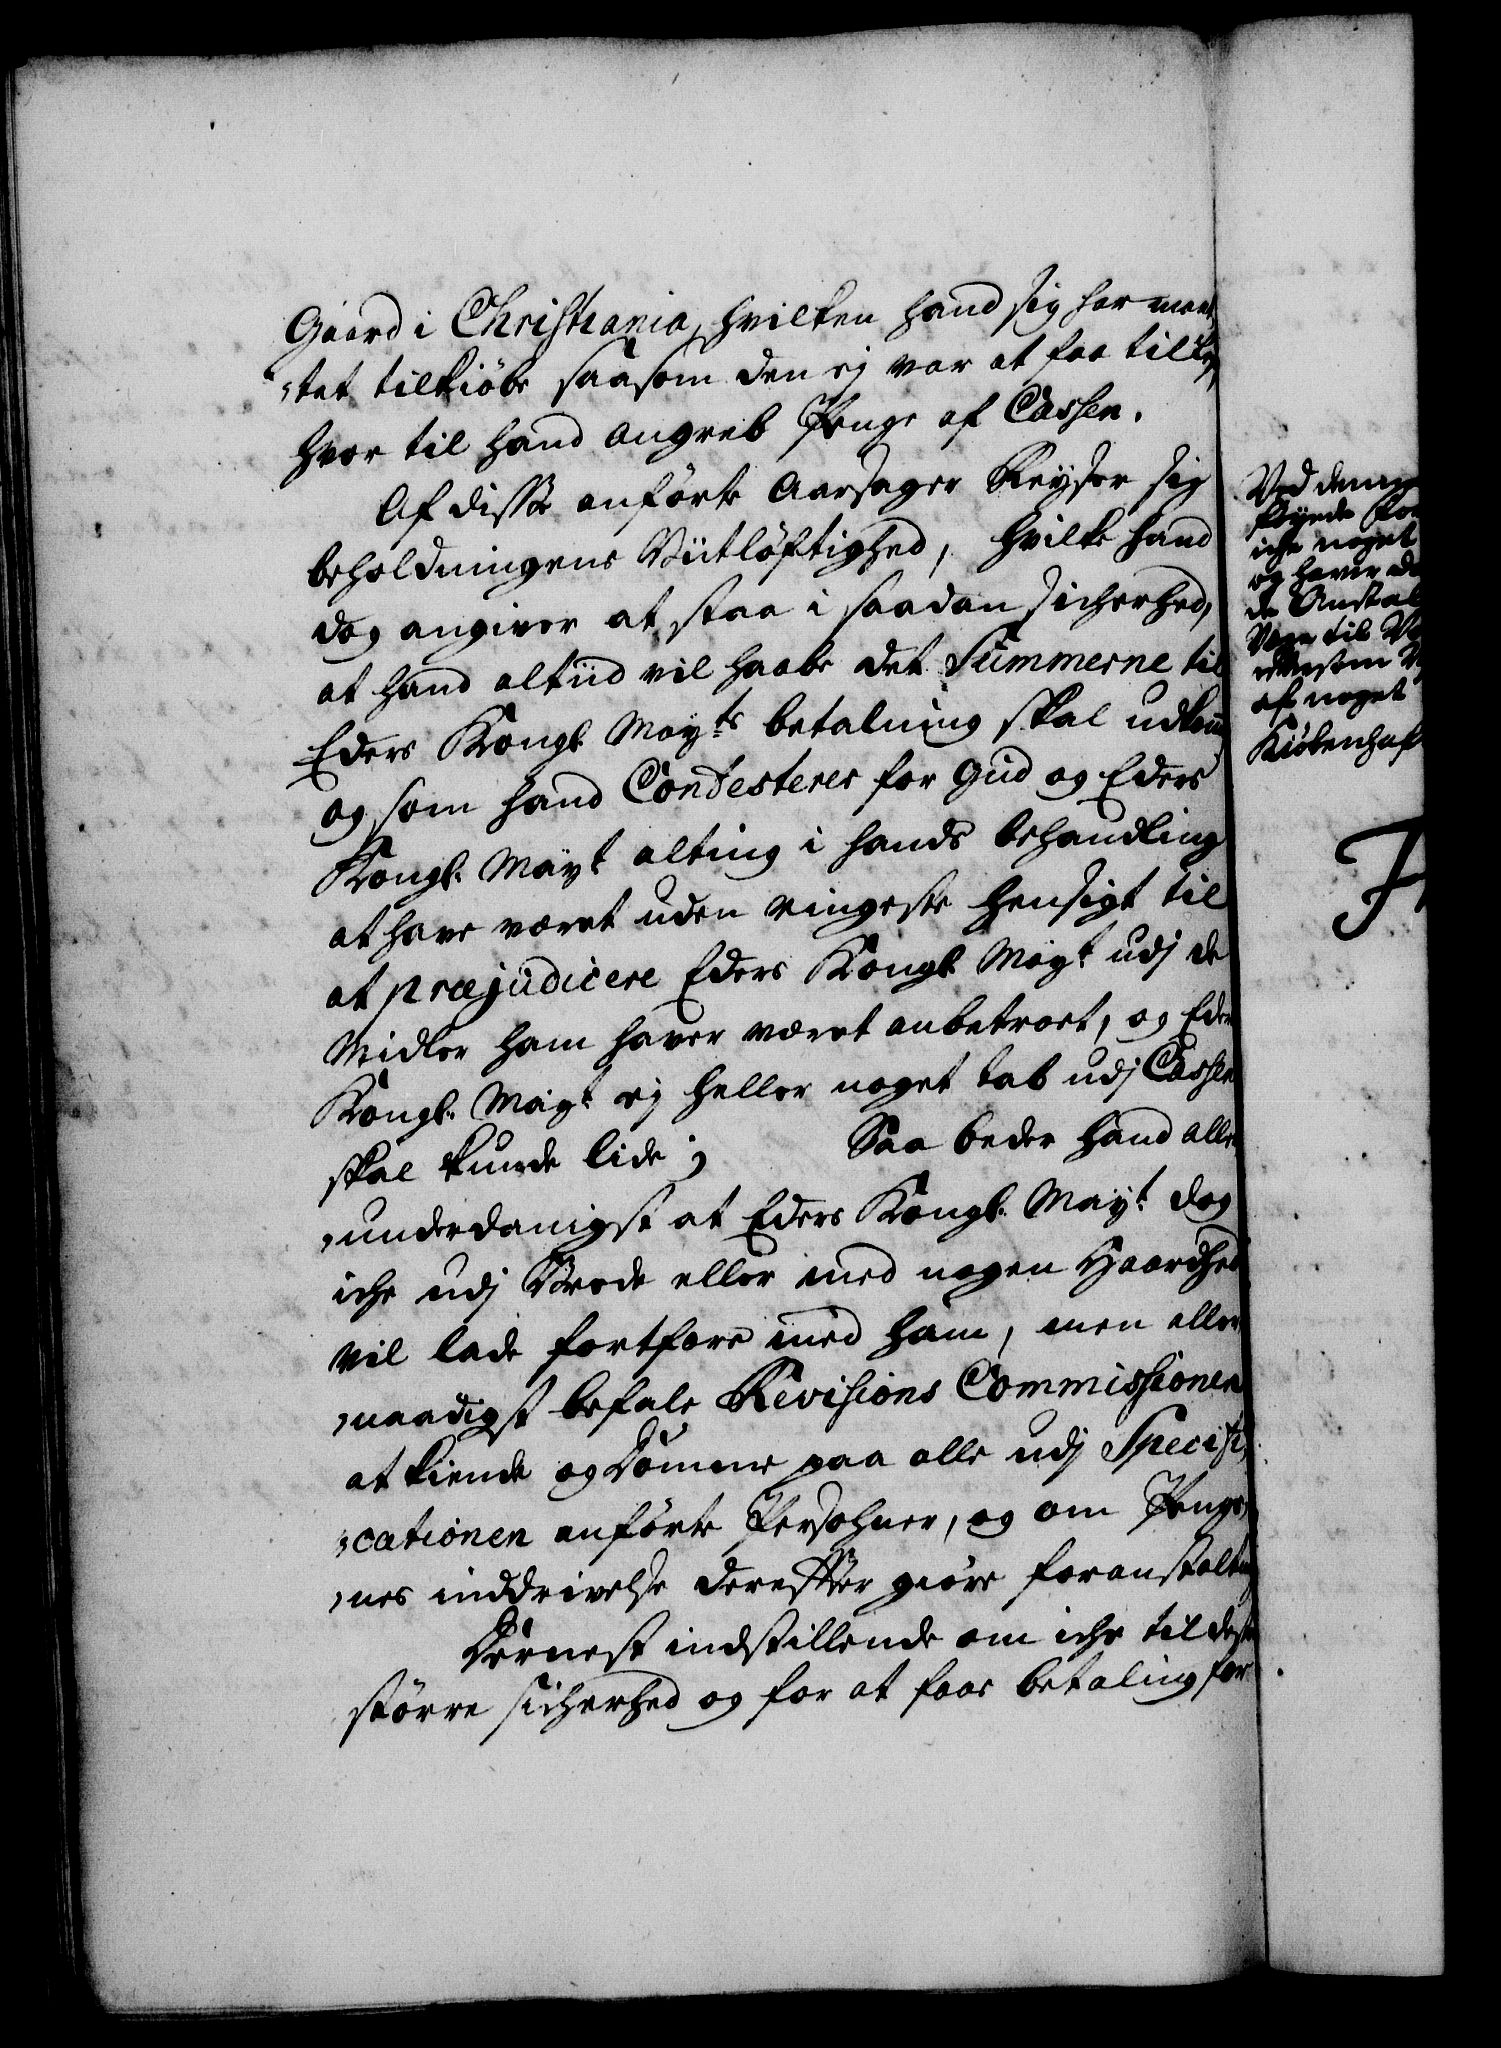 Gaard i Christiania, hvilken hand sig har maat,
,tet tilkiöbe saasom den ej var at faa tilleÿe,
hvor til hand angreb Penge af Cassen.
Af disse anförte Aarsager Reÿser sig
beholdningens Viitlöftighed, hvilke hand
dog angiver at staa i saadan Sicherhed,
at hand altiid vil haabe det Summerne til
Eders Kongl. Mayts betalning skal udkom
og som hand Contesterer for Gud og Eders
Kongl. Mayt alting i hands behandling
at have været uden ringeste hensigt til
at præjudicere Eders Kongl. Mayt udj de
Midler ham haver været anbetroet, og Eders
Kongl. Mayt ej heller noget tab udj Cassen
skal kunde lide; Saa beder hand aller,
,underdanigst at Eders Kongl. Mayt dog
iche udj Vrede eller med nogen Haardhed
vil lade fortfare med ham, men aller
,naadigst befale Revisions Commissionen
at kiende og Dömme paa alle udj Specifi,
,cationen anförte Persohner, og om Penge,
,nes inddrivelse derefter giöre foranstaltn
Dernest indstillende om iche til deste
större Sicherhed og for at faae betaling for
Ved denne
föyede
iche noget
og haver
de Anstal
til
af noget
Kiöbenhaf
F